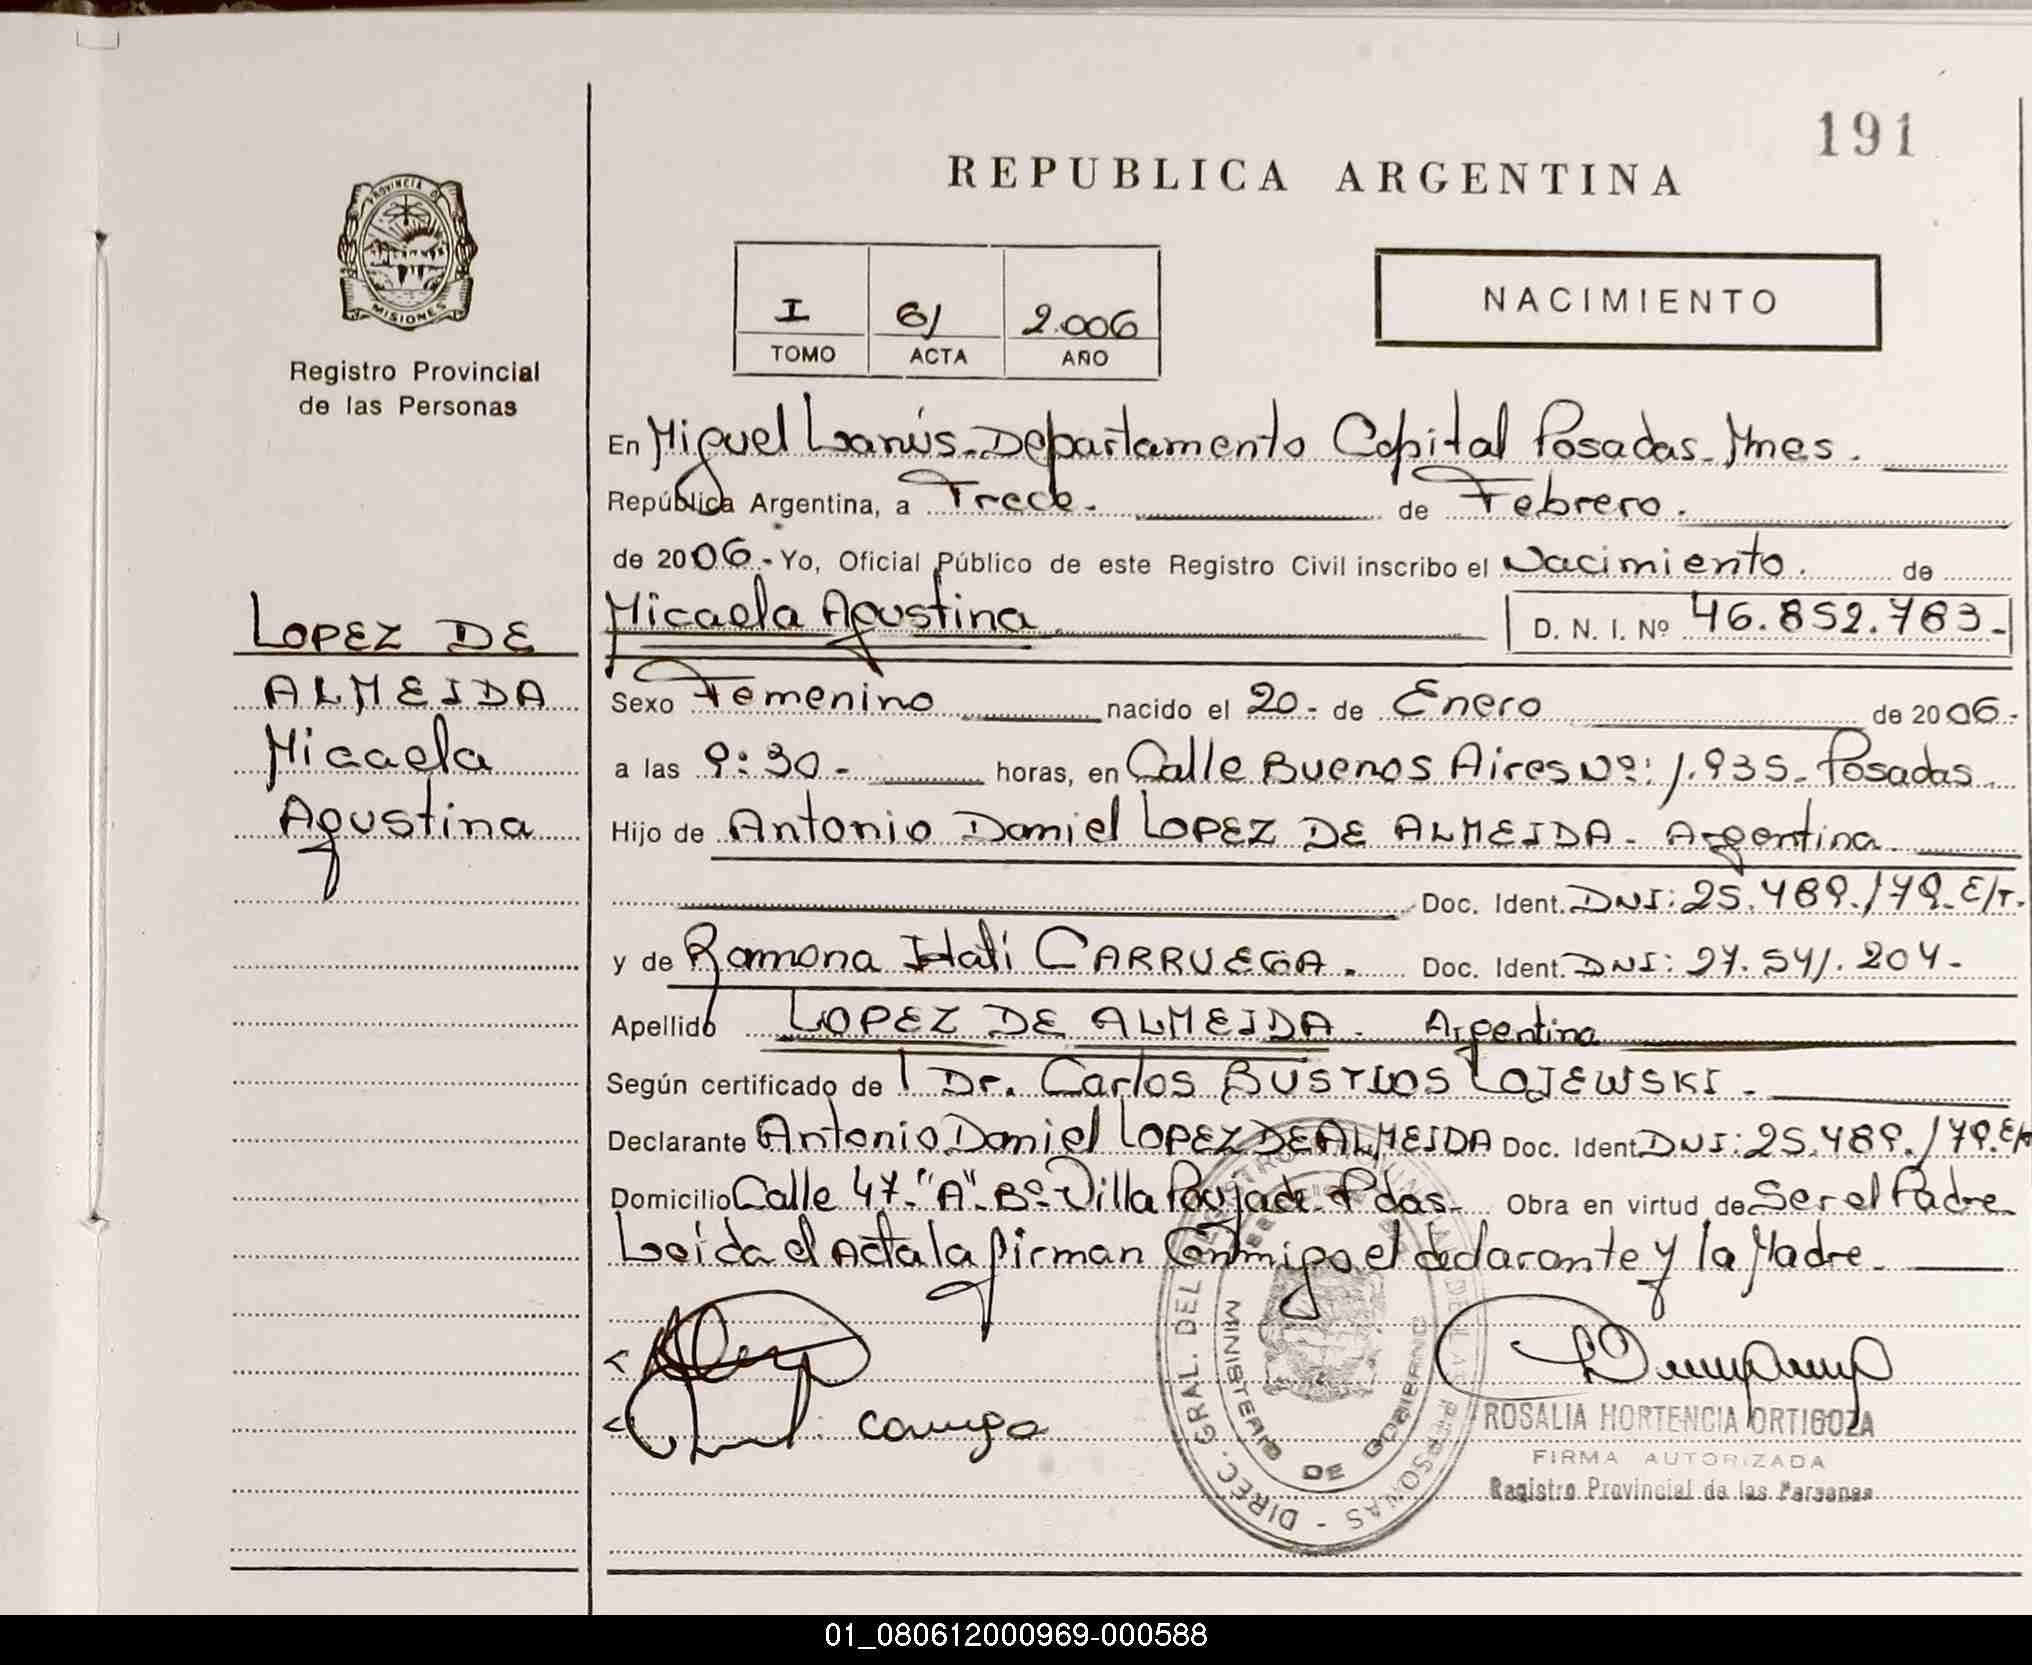 191
REPUBLICA ARGENTINA
PROVINCIA DE
MISIONES
Registro Provincial
de las Personas
I 61 2.006
TOMO ACTA AÑO
NACIMIENTO
En Miguel Lanús.Departamento Capital Posadas. Mnes.
República Argentina, a Trece. de Febrero.
de 2006.- Yo, Oficial Público de este Registro Civil inscribo el Nacimiento. de
Micaela Agustina D. N. I. Nº 46.852.783.-
LOPEZ DE
ALMEIDA
Micaela
Agustina
Sexo Femenino nacido el 20.- de Enero de 2006.-
a las 9:30.- horas, en Calle Buenos Aires Nº: 1.935. Posadas.
Hijo de Antonio Daniel LOPEZ DE ALMEIDA. Argentina.
Doc. Ident. DNI: 25.489.179. E/T.
y de Ramona Itati CARRUEGA. Doc. Ident. DNI: 27.541.204.-
Apellido LOPEZ DE ALMEIDA. Argentina
Según certificado de Dr. Carlos BUSTLOS LOJEWSKI.
Declarante Antonio Daniel LOPEZ DE ALMEIDA Doc. Ident. DNI: 25.489.179.
Domicilio Calle 47."A". Bº. Villa Poujade. Pdas. Obra en virtud de Ser el Padre
Leída el Acta la firman Conmigo el declarante y la Madre.
DIREC. GRAL. DEL REGISTRO PERSONAS
MINISTERIO DE GOBIERNO
ROSALIA HORTENCIA ORTIGOZA
FIRMA AUTORIZADA
Registro Provincial de las Personas
01_080612000969-000588